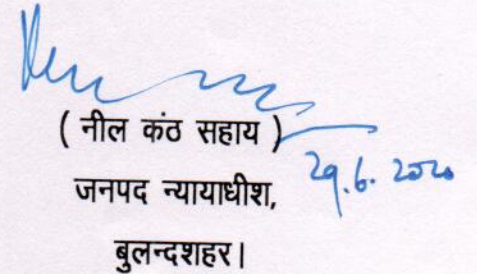 ( नील कंठ सहाय )
29.6.2020
जनपद न्यायाधीश,
बुलन्दशहर।